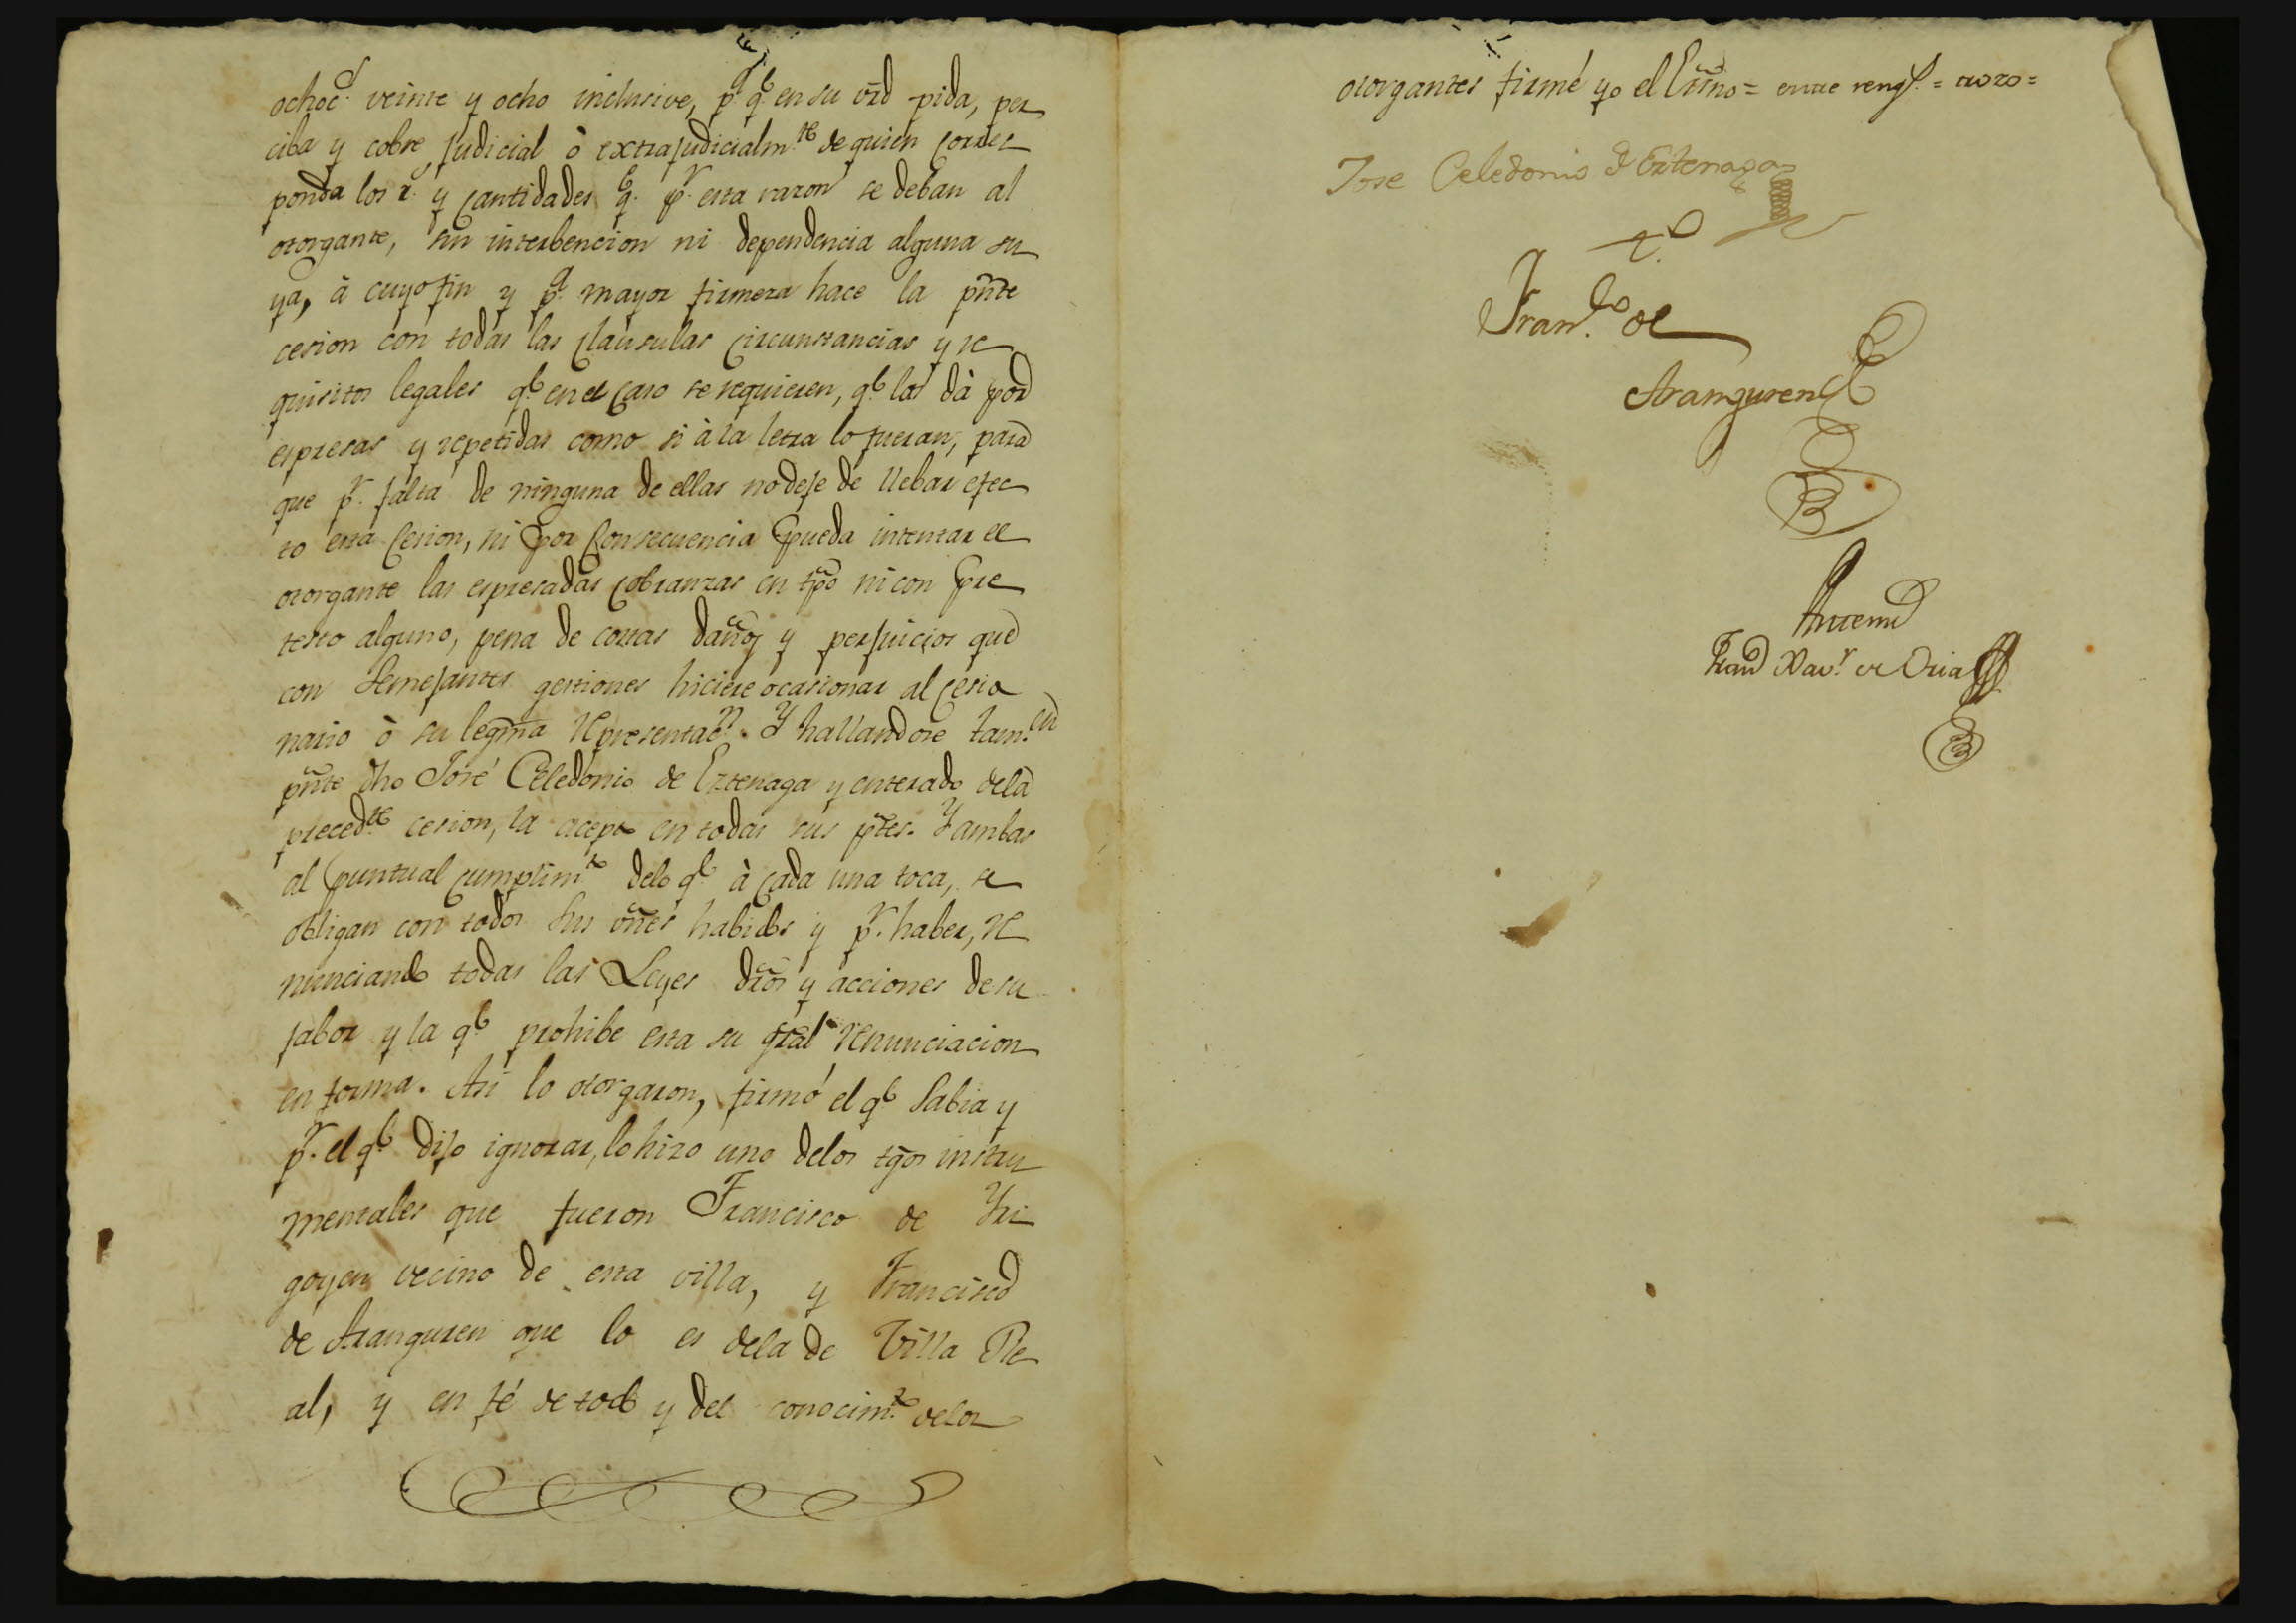 ochoc.s veinte y ocho inclusive, p.a q.e en su vrd pida, per
ciba y cobre judicial ò extrajudicialm.te de quien corres
ponda los r.s y cantidades q.e p.r esta razon se deban al
otorgante, sin interbencion ni dependencia alguna su
ya, à cuyo fin y p.a mayor firmeza hace la pñte
cesion con todas las clausulas circunstancias y re
quisitos legales q.e en el caso se requieren, q.e las dà por
espresas y repetidas como si à la letra lo fueran, para
que p.r falta de ninguna de ellas no deje de llebar efec
to esta cesion, ni por consecuencia pueda intentar el
otorgante las espresadas cobranzas en tpõ ni con pre
testo alguno, pena de costas daños y perjuicios que
con semejantes gestiones hiciere ocasionar al cesio
nario ò su legma representac.n. Y hallandose tam.en
pñte dho José Celedonio de Eztenaga y enterado dela
preced.te cesion, la acepto en todas sus ptes. Y ambas
al puntual cumplim.to delo q.e à cada una toca, se
obligan con todos sus vñes habidos y p.r haber, re
nunciando todas las Leyes dr̃os y acciones de su
fabor y la q.e prohibe esta su gral renunciacion
en forma. Asi lo otorgaron, firmó el q.e sabia y
p.r el q.e dijo ignorar, lo hizo uno delos tgos instru
mentales que fueron Francisco de Yri
goyen vecino de esta villa, y Francisco
de Aranguren que lo es dela de Villa Re
al, y en fé de todo y del conocim.to delos
otorgantes firmé yo el Esño = entre rengl.s =
Jose Celedonio d Eztenaga
Fran.co de
Aranguren
Antemi
Fran.co Xav.r de Oria